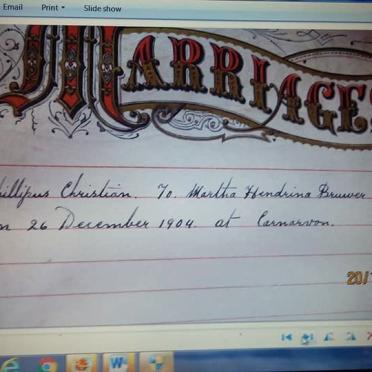 Email Print Slide show
MARRIAGES
illipus Christian. To. Martha Hendrina Bruwer
n 26 December 1904. at Carnarvon.
20/1